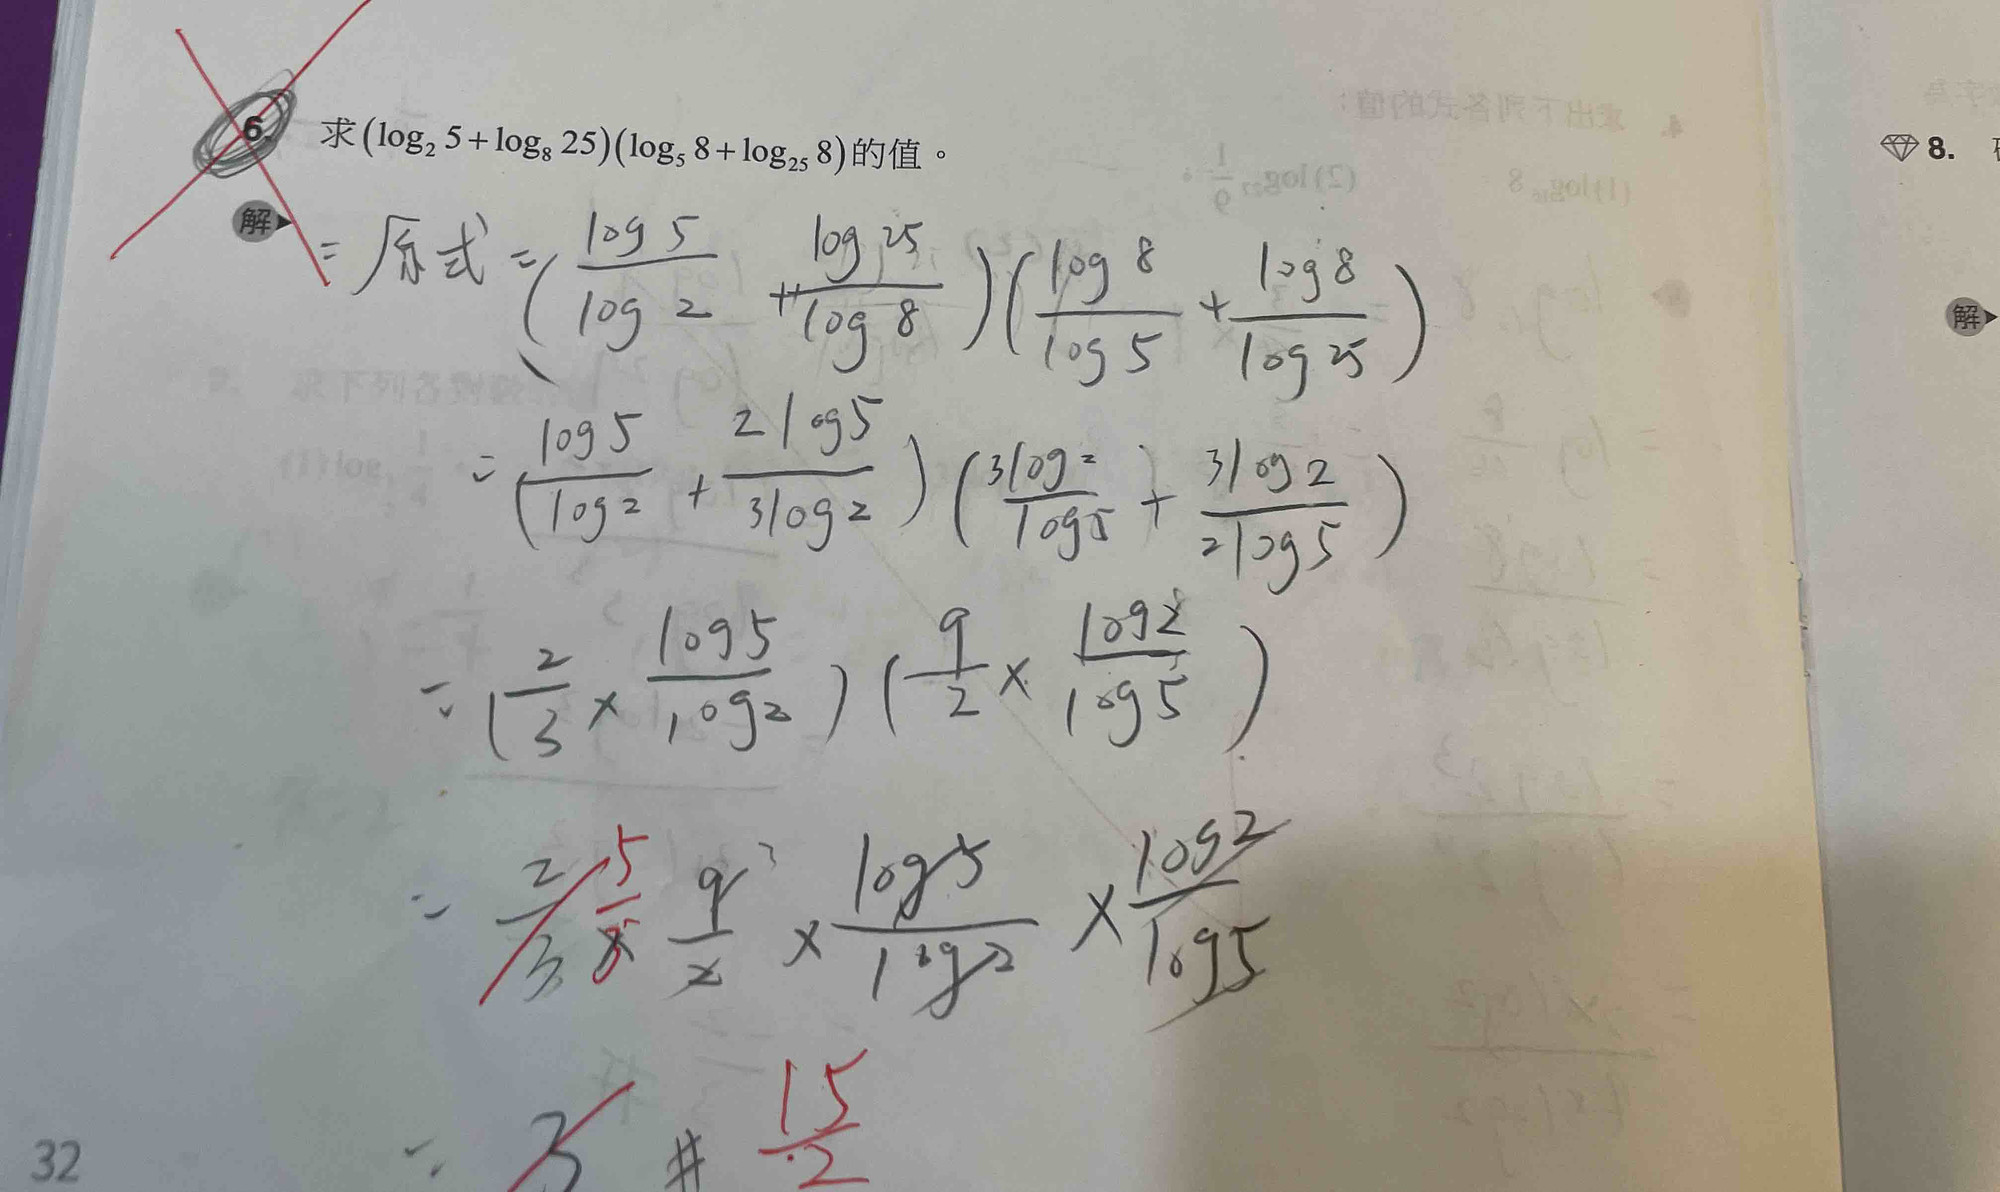 6. 求(log₂ 5+log₈ 25)(log₅ 8+log₂₅ 8)的值。
解
= 原式 = (log 5/log 2 + log 25/log 8)(log 8/log 5 + log 8/log 25)
= (log 5/log 2 + 2 log 5/3 log 2)(3 log 2/log 5 + 3 log 2/2 log 5)
= (2/3 × log 5/log 2)(9/2 × log 2/log 5)
= 2/3 5/3 × 9/2 3 × log 5/log 2 × log 2/log 5
= 3 # 15/2
32
4. 求出下列各式的值:
(1) log₁₆ 8 (2) log₂₇ 1/9
8.
解